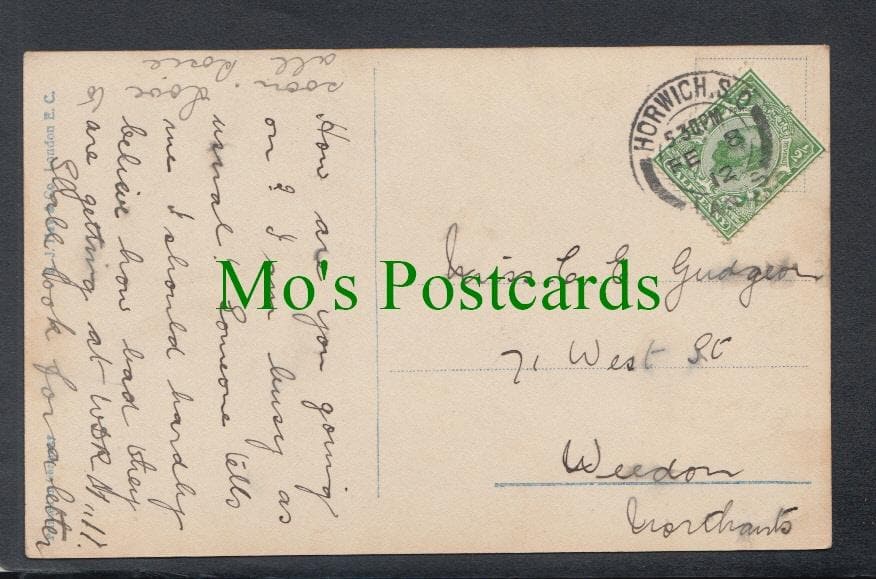 How are you going
on? I am busy as
usual. Someone tells
me I should hardly
believe how bad they
are getting at WDR
Shall look for a letter
soon. Love to
all Rosie
HORWICH. S.O
5 30 PM
FE 8
12
HALFPENNY
Miss C E Gudgeon
71 West St
Weedon
Northants
London E. C.
Mo's Postcards